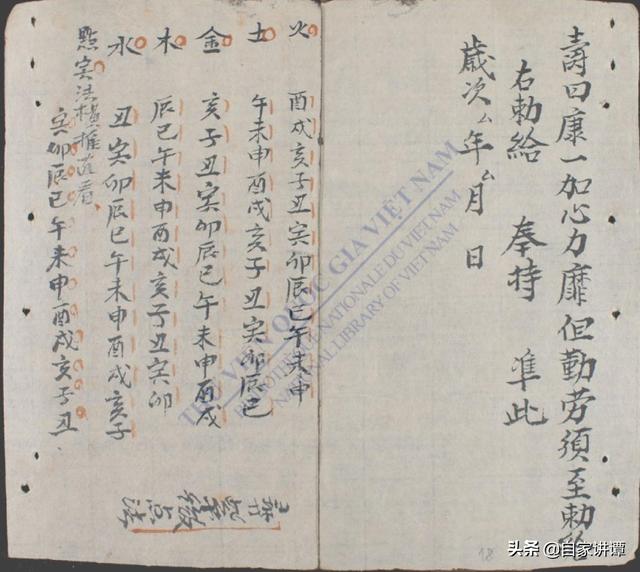 壽曰康一加心力靡但勤勞須至勅
右勅給 奉持 準此
歲次厶年厶月 日
火 酉戌亥子丑寅卯辰巳午未申
土 午未申酉戌亥子丑寅卯辰巳
金 亥子丑寅卯辰巳午未申酉戌
木 辰巳午未申酉戌亥子丑寅卯
水 丑寅卯辰巳午未申酉戌亥子
點寅法橫推直看
寅卯辰巳午未申酉戌亥子丑
THƯ VIỆN QUỐC GIA VIỆT NAM
BIBLIOTHÈQUE NATIONALE DU VIETNAM
NATIONAL LIBRARY OF VIETNAM
18
头条 @自家讲谭